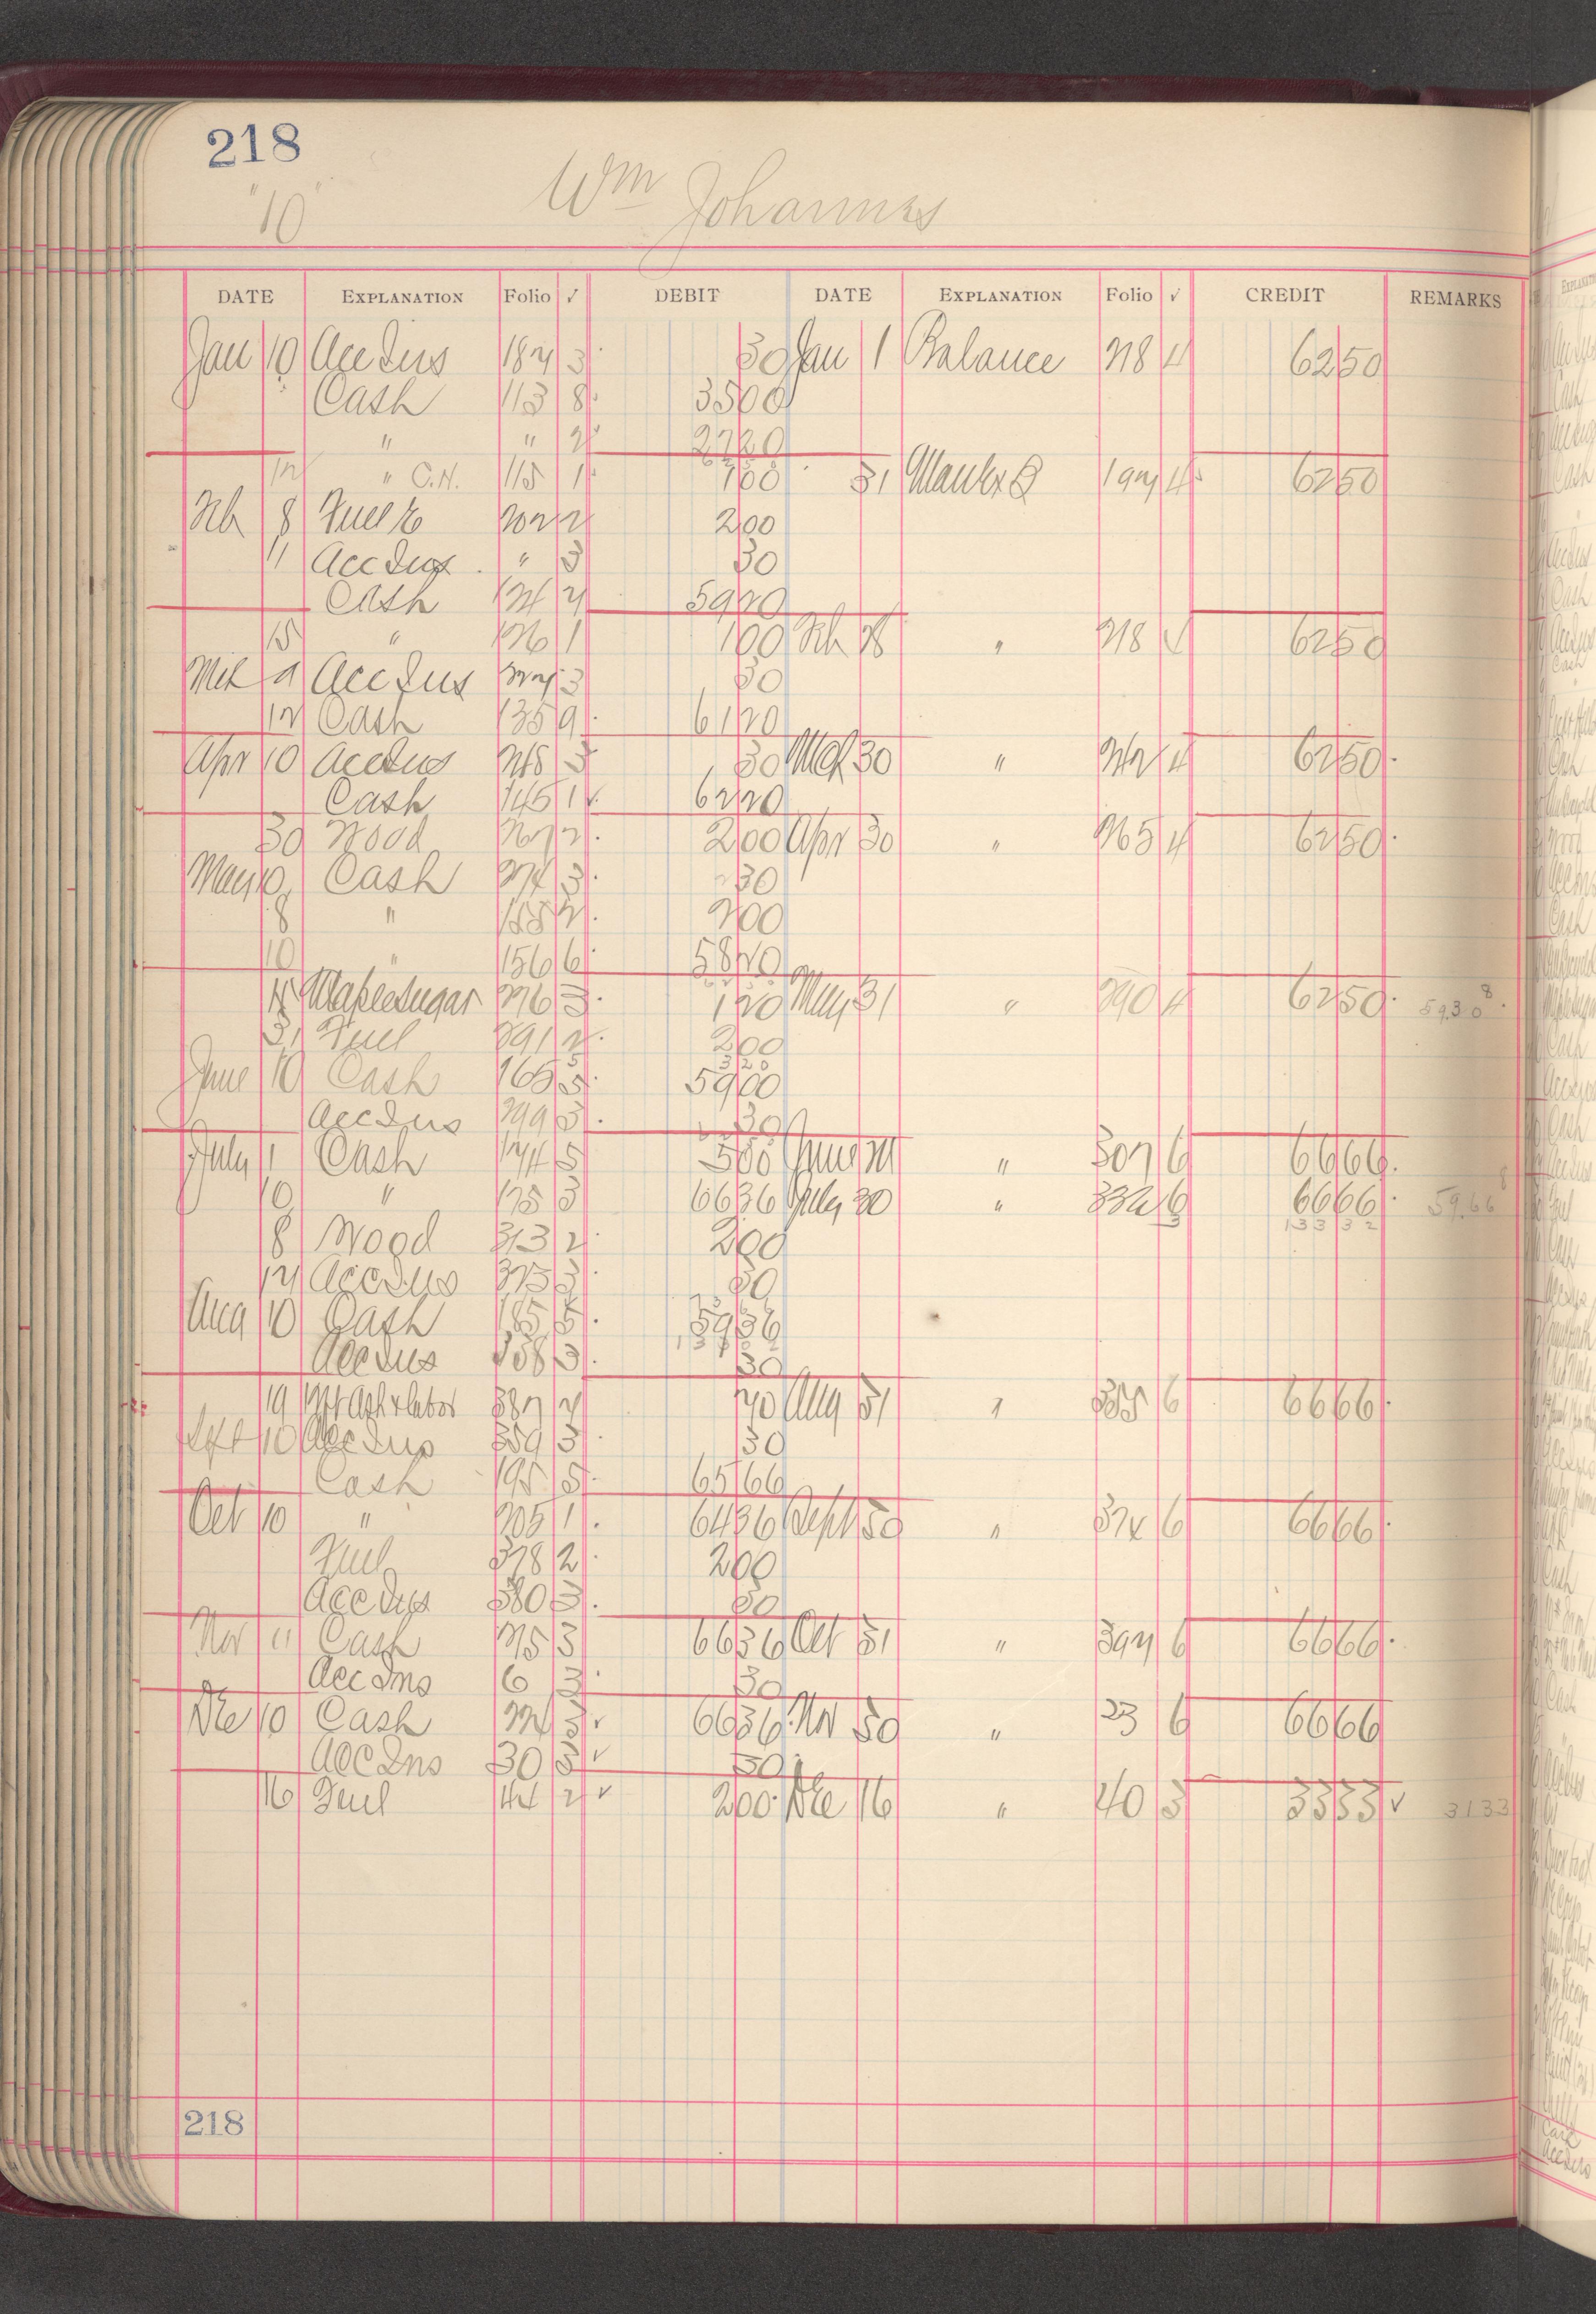 218
"10" Wm Johannes
DATE EXPLANATION Folio √ DEBIT DATE EXPLANATION Folio √ CREDIT REMARKS
Jan 10 Acc Ins 187 3 30 Jan 1 Balance 218 4 6250
Cash 113 8 3500
" " 2 2720
12 " C.H. 115 1 100 31 Manlx B 197 4 6250
Feb 8 Fuel 202 2 200
11 Acc Ins " 3 30
Cash 124 2 5920
15 " 126 1 100 Feb 28 " 218 4 6250
Mch 9 Acc Ins 227 3 30
12 Cash 135 9 6120
Apr 10 Acc Ins 245 3 30 Mch 30 " 242 4 6250
Cash 145 1 6220
30 Wood 267 2 200 Apr 30 " 265 4 6250
May 10 Cash 274 3 30
8 " 155 2 200
10 " 156 6 5820
Maple Sugar 276 3 120 May 31 " 290 4 6250 59.30
31 Fuel 291 2 200
320
June 10 Cash 165 5 5900
Acc Ins 299 3 30
July 1 Cash 174 5 500 June 30 " 307 6 6666
10 " 175 3 6636 July 30 " 332 6 6666 59.66
13332
8 Wood 313 2 200
12 Acc Ins 315 3 30
Aug 10 Cash 185 5 5936
Acc Ins 338 3 30
19 Ash & labor 70 Aug 31 " 6 6666
Sept 10 Acc Ins 359 3 30
Cash 195 5 6566
Oct 10 " 205 1 6436 Sept 30 " 374 6 6666
Fuel 378 2 200
Acc Ins 380 3 30
Nov 11 Cash 215 3 6636 Oct 31 " 397 6 6666
Acc Ins 6 3 30
Dec 10 Cash 224 3 √ 6636 Nov 30 " 23 6 6666
Acc Ins 30 3 √ 30
16 Fuel 44 2 √ 200 Dec 16 " 40 3 3333 √ 3133
218